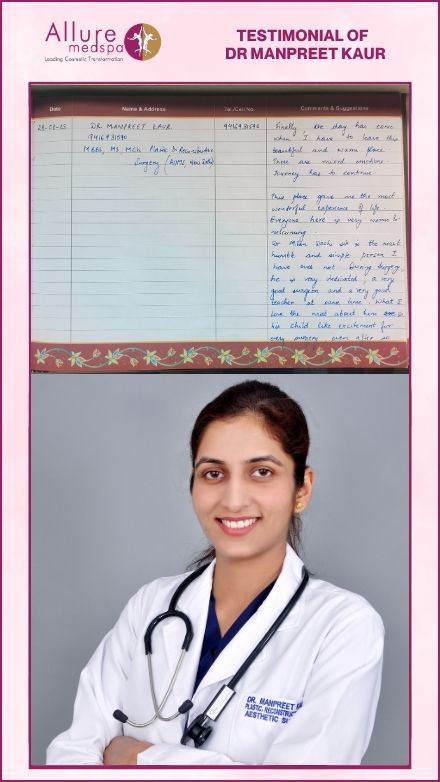 Allure
medspa
Leading Cosmetic Transformation
TESTIMONIAL OF
DR MANPREET KAUR
Date
Name & Address
Tel./Cell No.
Comments & Suggestions
DR. MANPREET KAUR
MBBS, MS, MCh Plastic & Reconstructive
Surgery (AIIMS, New Delhi)
Finally, the day has come
when I have to leave this
beautiful and warm place.
There are mixed emotions.
Journey has to continue
This place gave me the most
wonderful experience of life.
Everyone here is very warm &
welcoming.
Dr Milan Doshi sir is the most
humble and simple person I
have ever met. During surgery,
he is very dedicated, a very
good surgeon and a very good
teacher at same time. What I
love the most about him is
his child like excitement for
every surgery, even after so
DR. MANPREET
PLASTIC, RECONSTRUC
AESTHETIC SU